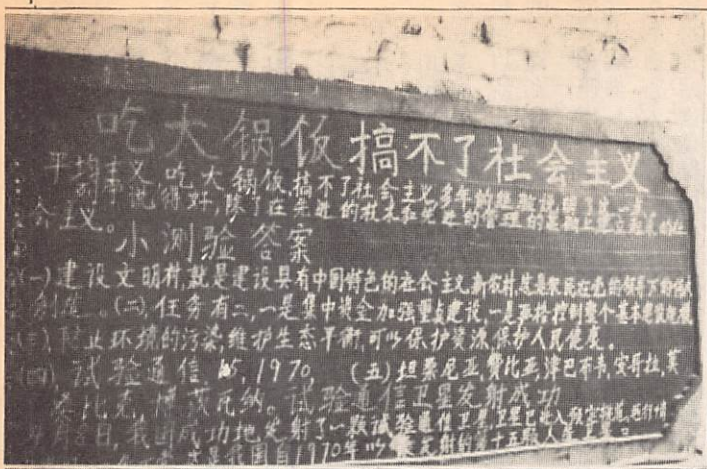 吃大锅饭搞不了社会主义
平均主义,吃大锅饭,搞不了社会主义,多年的经验说明了这一点
先进的技术和先进的管理的基础上
会主义。
小测验答案
(一)建设文明村,就是建设具有中国特色的社会主义新农村,这是农民在党的领导下的伟大
创造。(二)任务有二,一是集中资金加强重点建设,一是严格控制整个基本建设规模
(三)防止环境的污染,维护生态平衡,可以保护资源,保护人民健康。
(四)试验通信 15,1970, (五)坦桑尼亚,赞比亚,津巴布韦,安哥拉,莫
桑比克,博茨瓦纳。试验通信卫星发射成功
月8日,我国成功地发射了一颗试验通信卫星,卫星已进入预定轨道,运行情
我国自1970年以来发射的第十五颗人造卫星。